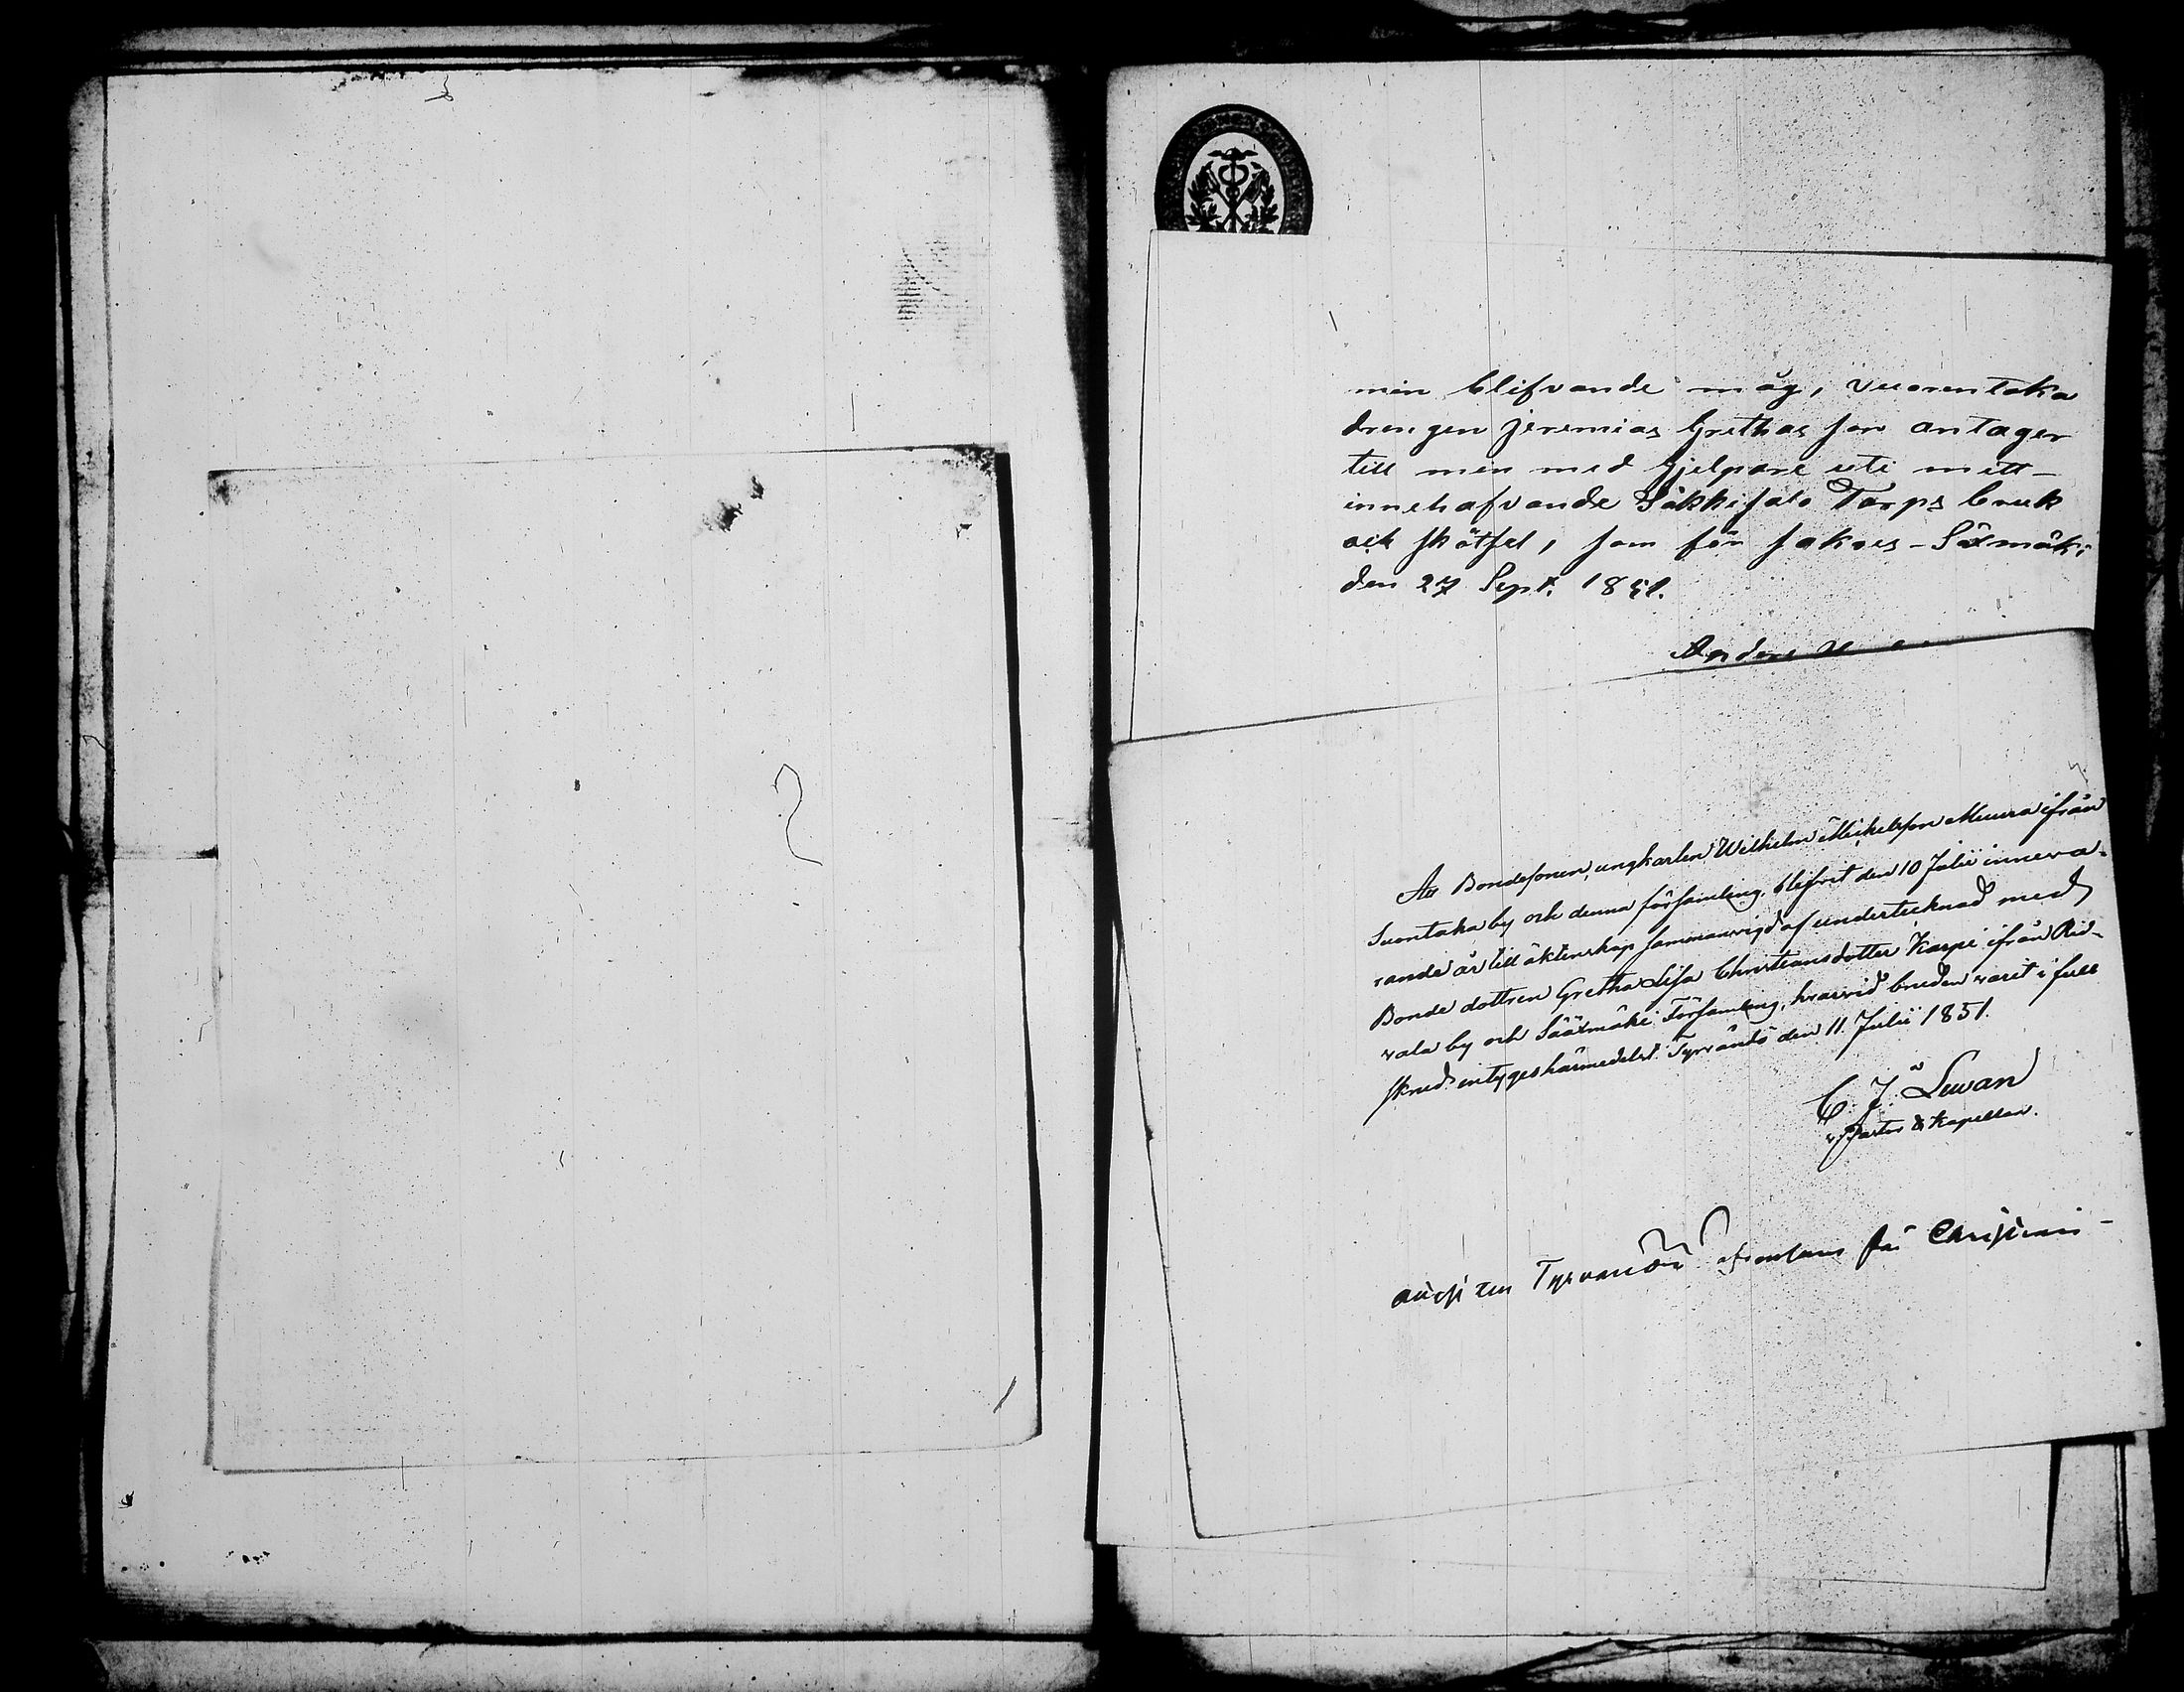 min blifvande måg, Vuorentaka
drengen Jeremias Grethas son antager
till min med hjelpare uti mitt-
innehafvande Säkkisalo Torps bruk
ock skötsel, som försäkras – Säxmäki
den 27 Sept. 1851.
Anders
Att Bondesonen, ungkarlen Wilhelm Mickelsson Muura ifrån
Suontaka by och denna församling, blifvit den 10 Julii inneva-
rande år till äktenskap sammanvigd af undertecknad med
Bonde dottren Gretha Lisa Christiansdotter Karpi ifrån Rit-
vala by och Sääxmäki Församling, hvarvid bruden varit i full
skrud intygas härmedelst. Tyrväntö den 11. Julii 1851.
C. J. Lewan
v. Pastor & Kapellan.
Tyrvändö